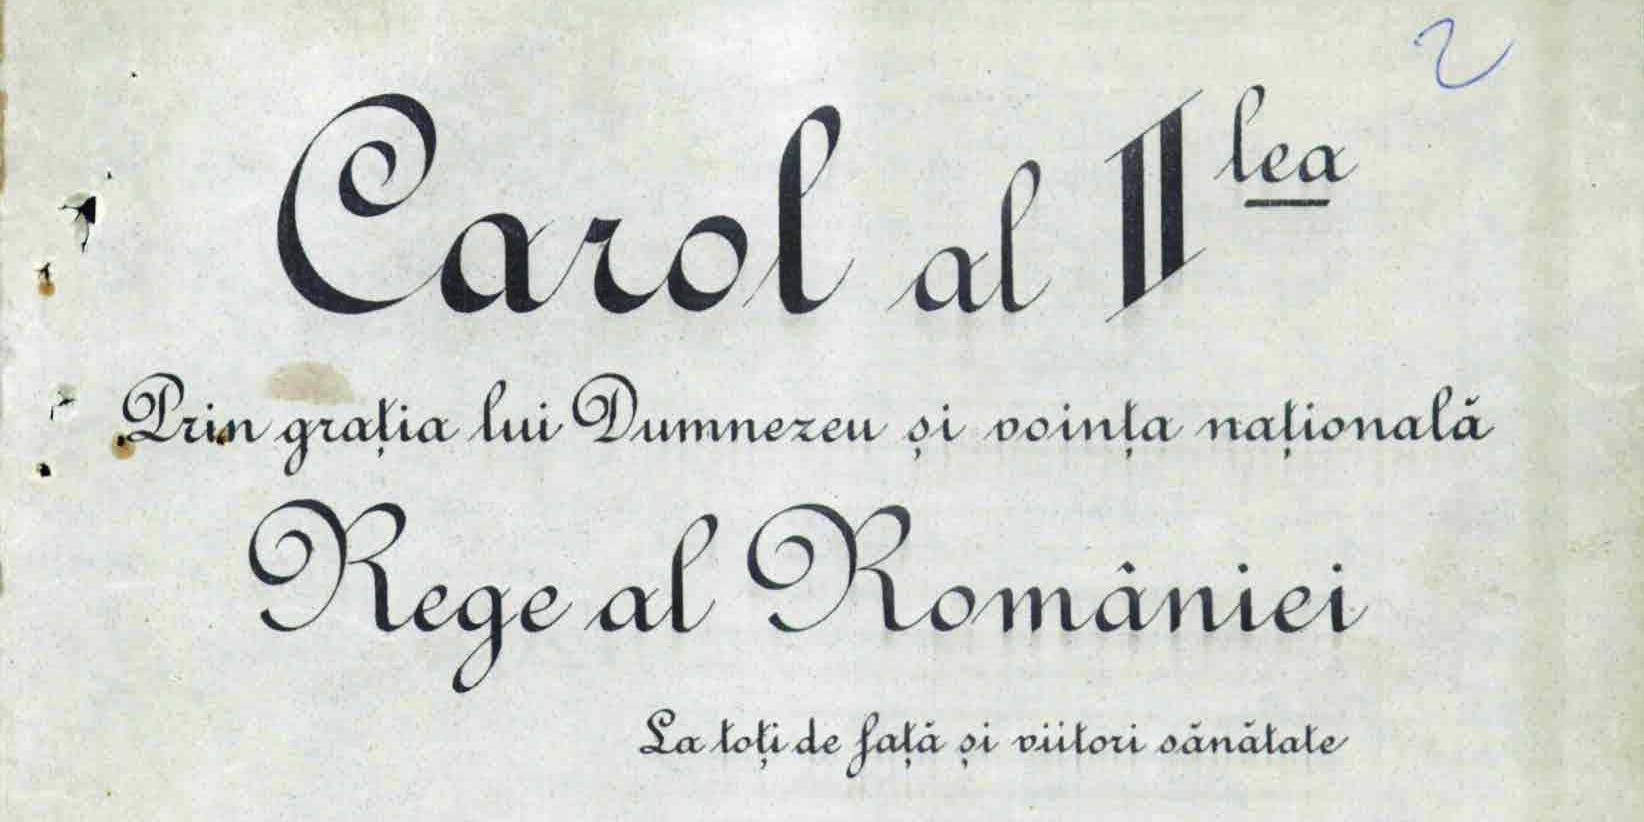 2
Carol al II lea
Prin grația lui Dumnezeu și voința națională
Rege al României
La toți de față și viitori sănătate